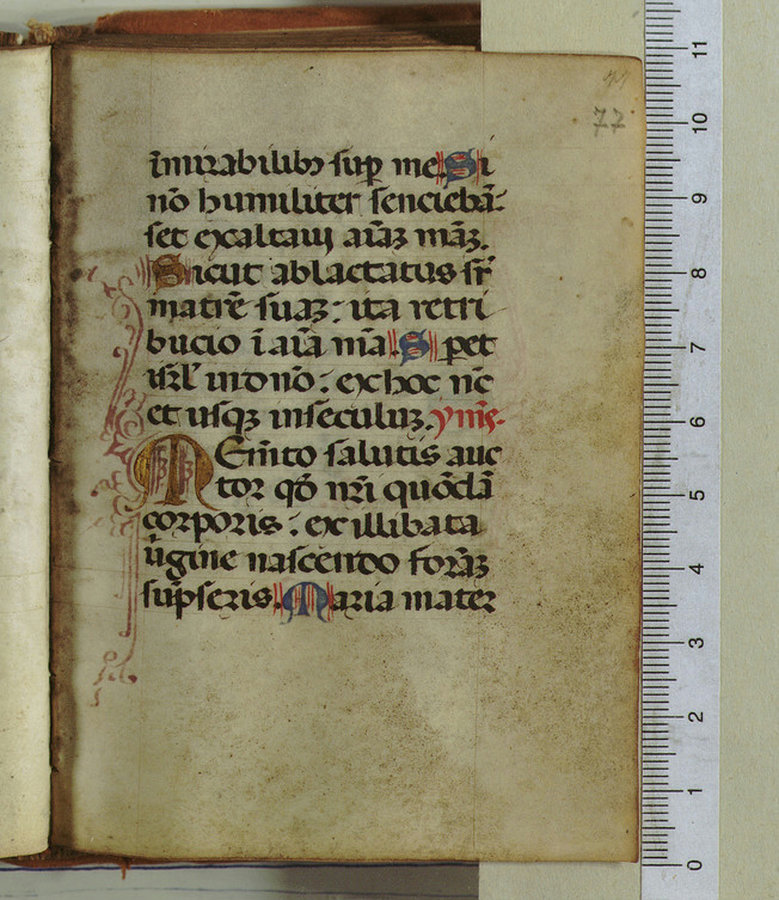 77
ī mirabilib; sup me. Si
nō humiliter senciebā:
set exaltaui aīaʒ māʒ.
Sicut ablactatus sr̄
matrē suaʒ: ita retri
bucio ī aīa mīa. Spet
isrl̄ in dno: ex hoc nc̄
et usqʒ in seculuʒ. yms.
Memto salutis auc
tor qđ nri quōdā
corporis: ex illibata
v̄gine nascendo formāʒ
sūpseris. Maria mater
11
10
9
8
7
6
5
4
3
2
1
0